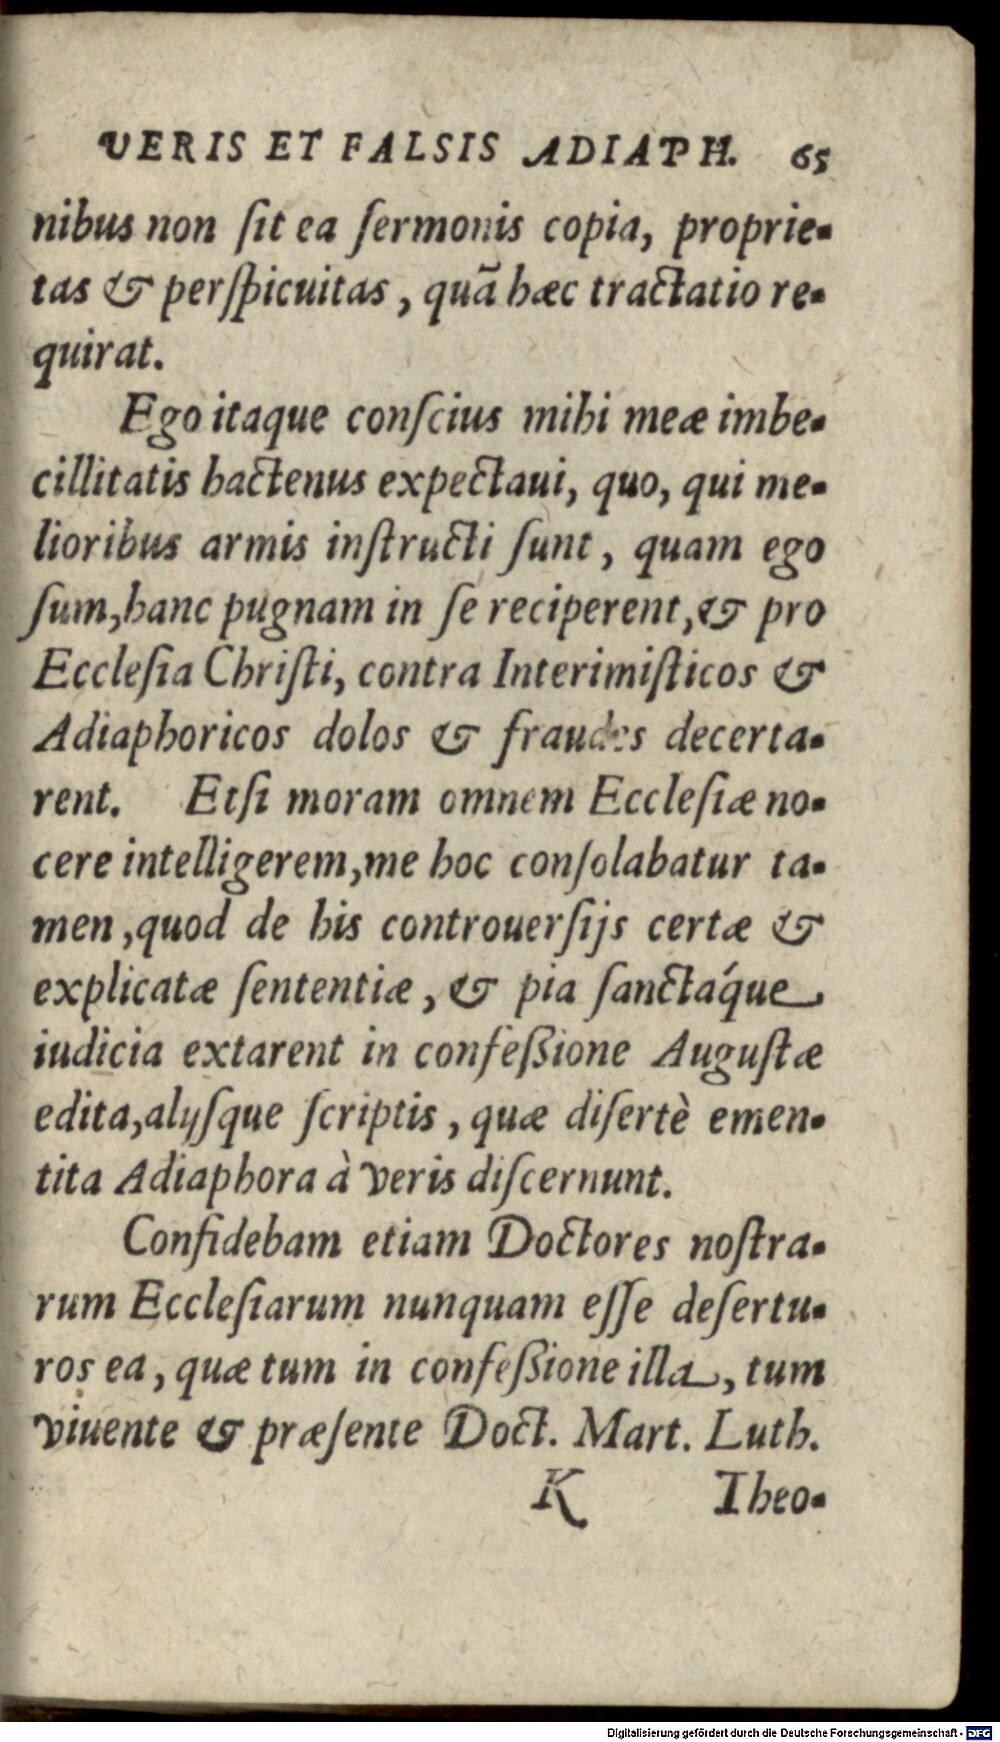 VERIS ET FALSIS ADIAPH. 65
nibus non ſit ea ſermonis copia, proprie-
tas & perſpicuitas, quã hæc tractatio re-
quirat.
Ego itaque conſcius mihi meæ imbe-
cillitatis hactenus expectaui, quo, qui me-
lioribus armis inſtructi ſunt, quam ego
ſum, hanc pugnam in ſe reciperent, & pro
Eccleſia Chriſti, contra Interimiſticos &
Adiaphoricos dolos & fraudes decerta-
rent. Etſi moram omnem Eccleſiæ no-
cere intelligerem, me hoc conſolabatur ta-
men, quod de his controuerſijs certæ &
explicatæ ſententiæ, & pia ſanctáque
iudicia extarent in confeßione Auguſtæ
edita, alijſque ſcriptis, quæ diſertè emen-
tita Adiaphora à veris diſcernunt.
Confidebam etiam Doctores noſtra-
rum Eccleſiarum nunquam eſſe deſertu-
ros ea, quæ tum in confeßione illa, tum
viuente & præſente Doct. Mart. Luth.
K Theo-
Digitalisierung gefördert durch die Deutsche Forschungsgemeinschaft - DFG